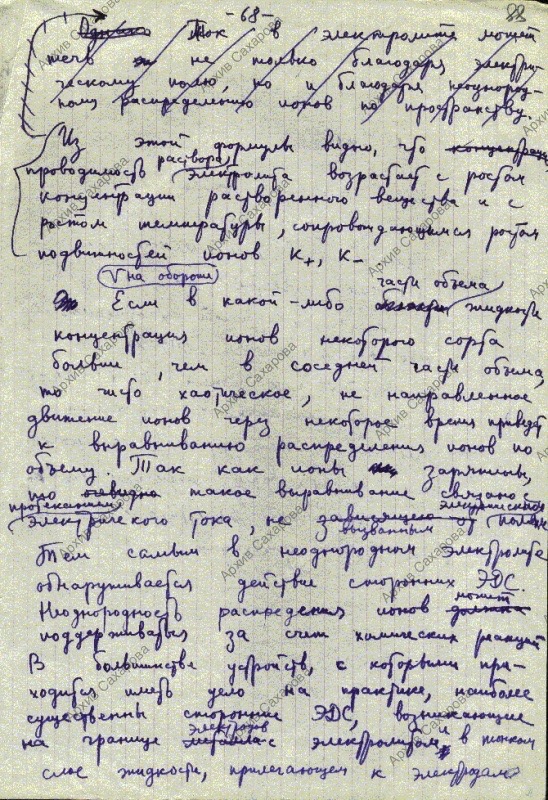 -68-
88
Однако Ток в электролите может
течь не только благодаря электри-
ческому полю, но и благодаря неоднород-
ному распределению ионов по пространству.
Из этой формулы видно, что концентрац
проводимость раствора электролита возрастает с ростом
концентрации растворенного вещества и с
ростом температуры, сопровождающимся ростом
подвижностей ионов К+, К−
V на обороте
Если в какой-либо части объема жидкости
концентрация ионов некоторого сорта
больше, чем в соседней части объема,
то чисто хаотическое, не направленное
движение ионов через некоторое время приведет
к выравниванию распределения ионов по
объему. Так как ионы заряжены,
то очевидно такое выравнивание связано с
протеканием электрического тока, не зависящего от вызванным электрическим полем
Тем самым в неоднородном электролите
обнаруживается действие сторонних ЭДС.
Неоднородность распределения ионов должна может
поддерживаться за счет химических реакций
В большинстве устройств, с которыми при-
ходится иметь дело на практике, наиболее
существенны сторонние ЭДС, возникающие
на границе металла с электродов электролитом, в тонком
слое жидкости, прилегающем к электродам
Архив Сахарова